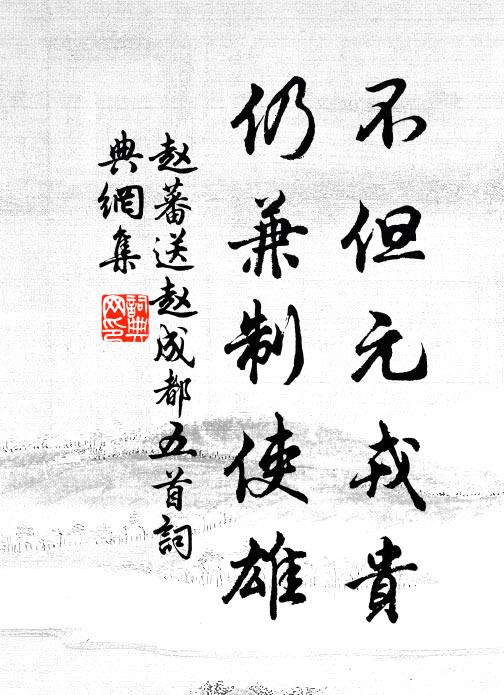 不但元戎貴
仍兼制使雄
赵蕃送赵成都五首詞
典網集
詞典
网印